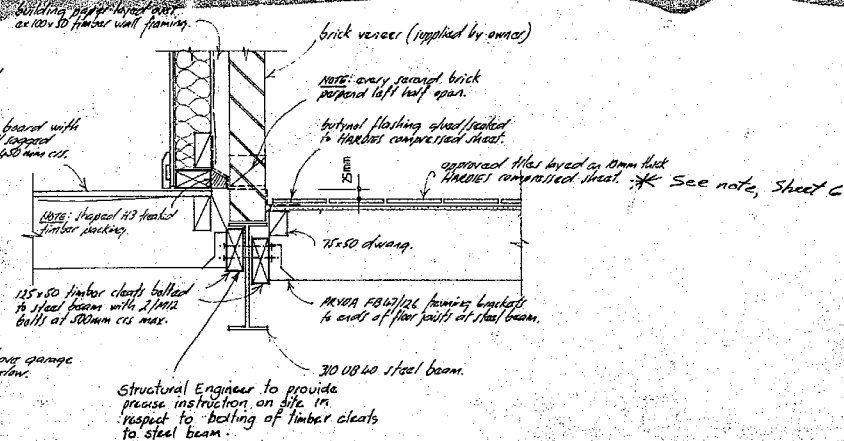 building paper layed over
ex 100x50 timber wall framing.
brick veneer (supplied by owner)
NOTE: every second brick
perpend left half open.
butynol flashing glued/sealed
to HARDIES compressed sheet.
25mm
approved tiles layed on 18mm thick
HARDIES compressed sheet. * See note, Sheet 6
board with
sagged
450mm crs.
NOTE: shaped H3 treated
timber packing.
75x50 dwang.
125x50 timber cleats bolted
to steel beam with 2/M12
bolts at 500mm crs max.
PRYDA FB47/126 framing brackets
to ends of floor joists at steel beam.
garage
310 UB 40 steel beam.
Structural Engineer to provide
precise instruction on site in
respect to bolting of timber cleats
to steel beam.